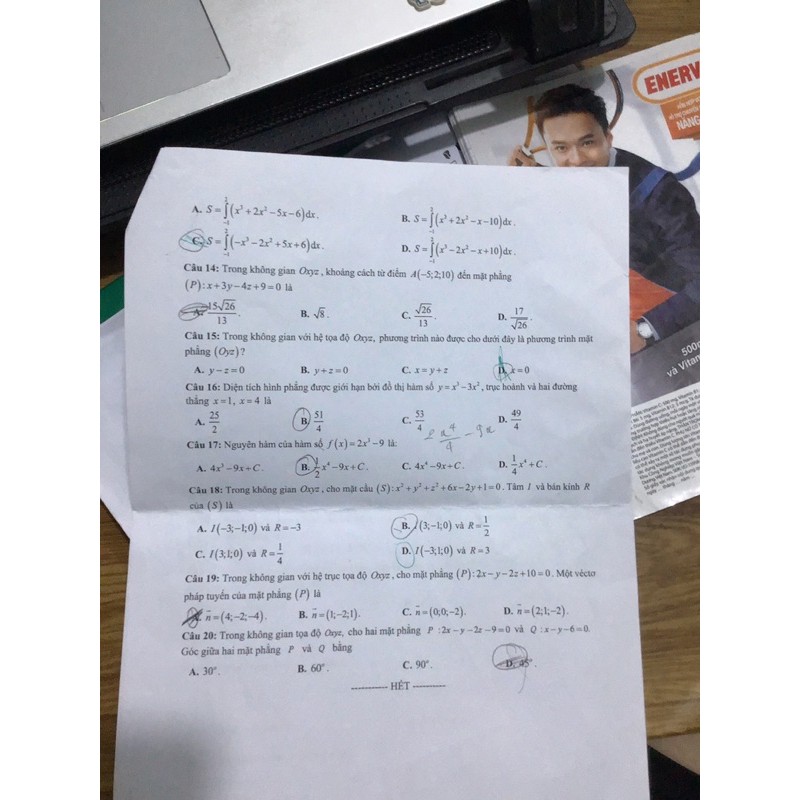 ENERV
HỖN HỢP
NĂNG
500
và Vitan
A. S = ∫₋₁² (x³ + 2x² − 5x − 6)dx.
B. S = ∫₋₁² (x³ + 2x² − x − 10)dx.
C. S = ∫₋₁² (−x³ − 2x² + 5x + 6)dx.
D. S = ∫₋₁² (x³ − 2x² − x + 10)dx.
Câu 14: Trong không gian Oxyz, khoảng cách từ điểm A(−5;2;10) đến mặt phẳng
(P): x + 3y − 4z + 9 = 0 là
A. 15√26/13. B. √8. C. √26/13. D. 17/√26.
Câu 15: Trong không gian với hệ tọa độ Oxyz, phương trình nào được cho dưới đây là phương trình mặt
phẳng (Oyz)?
A. y − z = 0 B. y + z = 0 C. x = y + z D. x = 0
Câu 16: Diện tích hình phẳng được giới hạn bởi đồ thị hàm số y = x³ − 3x², trục hoành và hai đường
thẳng x = 1, x = 4 là
A. 25/2 B. 51/4 C. 53/4 D. 49/4
2 x⁴/4 − 9x
Câu 17: Nguyên hàm của hàm số f(x) = 2x³ − 9 là:
A. 4x³ − 9x + C. B. 1/2 x⁴ − 9x + C. C. 4x⁴ − 9x + C. D. 1/4 x⁴ + C.
Câu 18: Trong không gian Oxyz, cho mặt cầu (S): x² + y² + z² + 6x − 2y + 1 = 0. Tâm I và bán kính R
của (S) là
A. I(−3;−1;0) và R = −3 B. I(3;−1;0) và R = 1/2
C. I(3;1;0) và R = 1/4 D. I(−3;1;0) và R = 3
Câu 19: Trong không gian với hệ trục tọa độ Oxyz, cho mặt phẳng (P): 2x − y − 2z + 10 = 0. Một véctơ
pháp tuyến của mặt phẳng (P) là
n⃗ = (4;−2;−4). B. n⃗ = (1;−2;1). C. n⃗ = (0;0;−2). D. n⃗ = (2;1;−2).
Câu 20: Trong không gian tọa độ Oxyz, cho hai mặt phẳng P : 2x − y − 2z − 9 = 0 và Q : x − y − 6 = 0.
Góc giữa hai mặt phẳng P và Q bằng
A. 30°. B. 60°. C. 90°. D. 45°.
------------ HẾT ----------